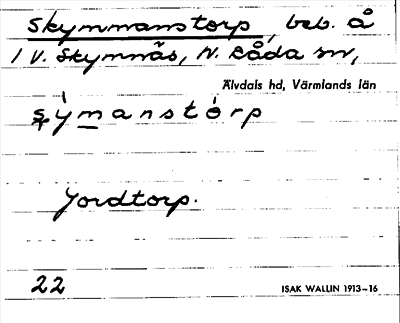 Skymmanstorp, beb. å
1 V. Skymnäs, N. Råda sn,
Älvdals hd, Värmlands län
ʂýmanstórp
Jordtorp.
22 ISAK WALLIN 1913-16